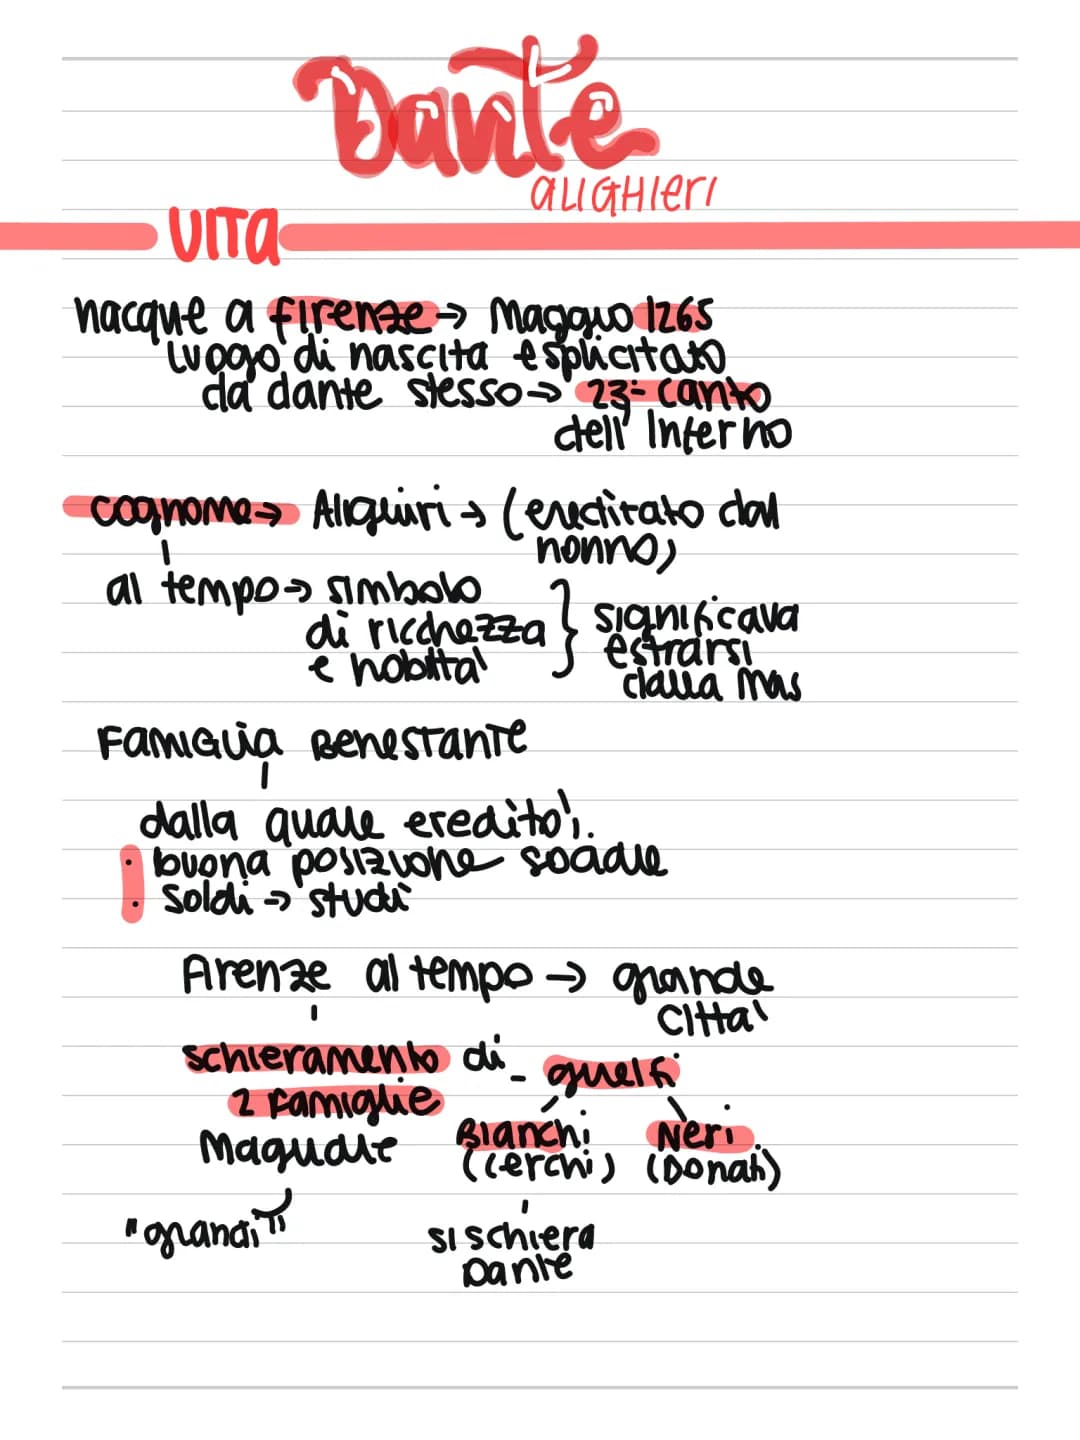 Dante
ALIGHIERI
VITA
nacque a firenze → Maggio 1265
luogo di nascita esplicitato
da dante stesso → 23° canto
dell' Inferno
cognome → Alighieri → (ereditato dal
nonno)
al tempo → simbolo
di ricchezza
e nobiltà
} significava
estrarsi
dalla mas
Famiglia Benestante
dalla quale ereditò:
• buona posizione sociale
• soldi → studi
Firenze al tempo → grande
città
schieramento di - guelfi
2 famiglie
Magnate
Bianchi Neri
(Cerchi) (Donati)
"grandi"
si schiera
Dante